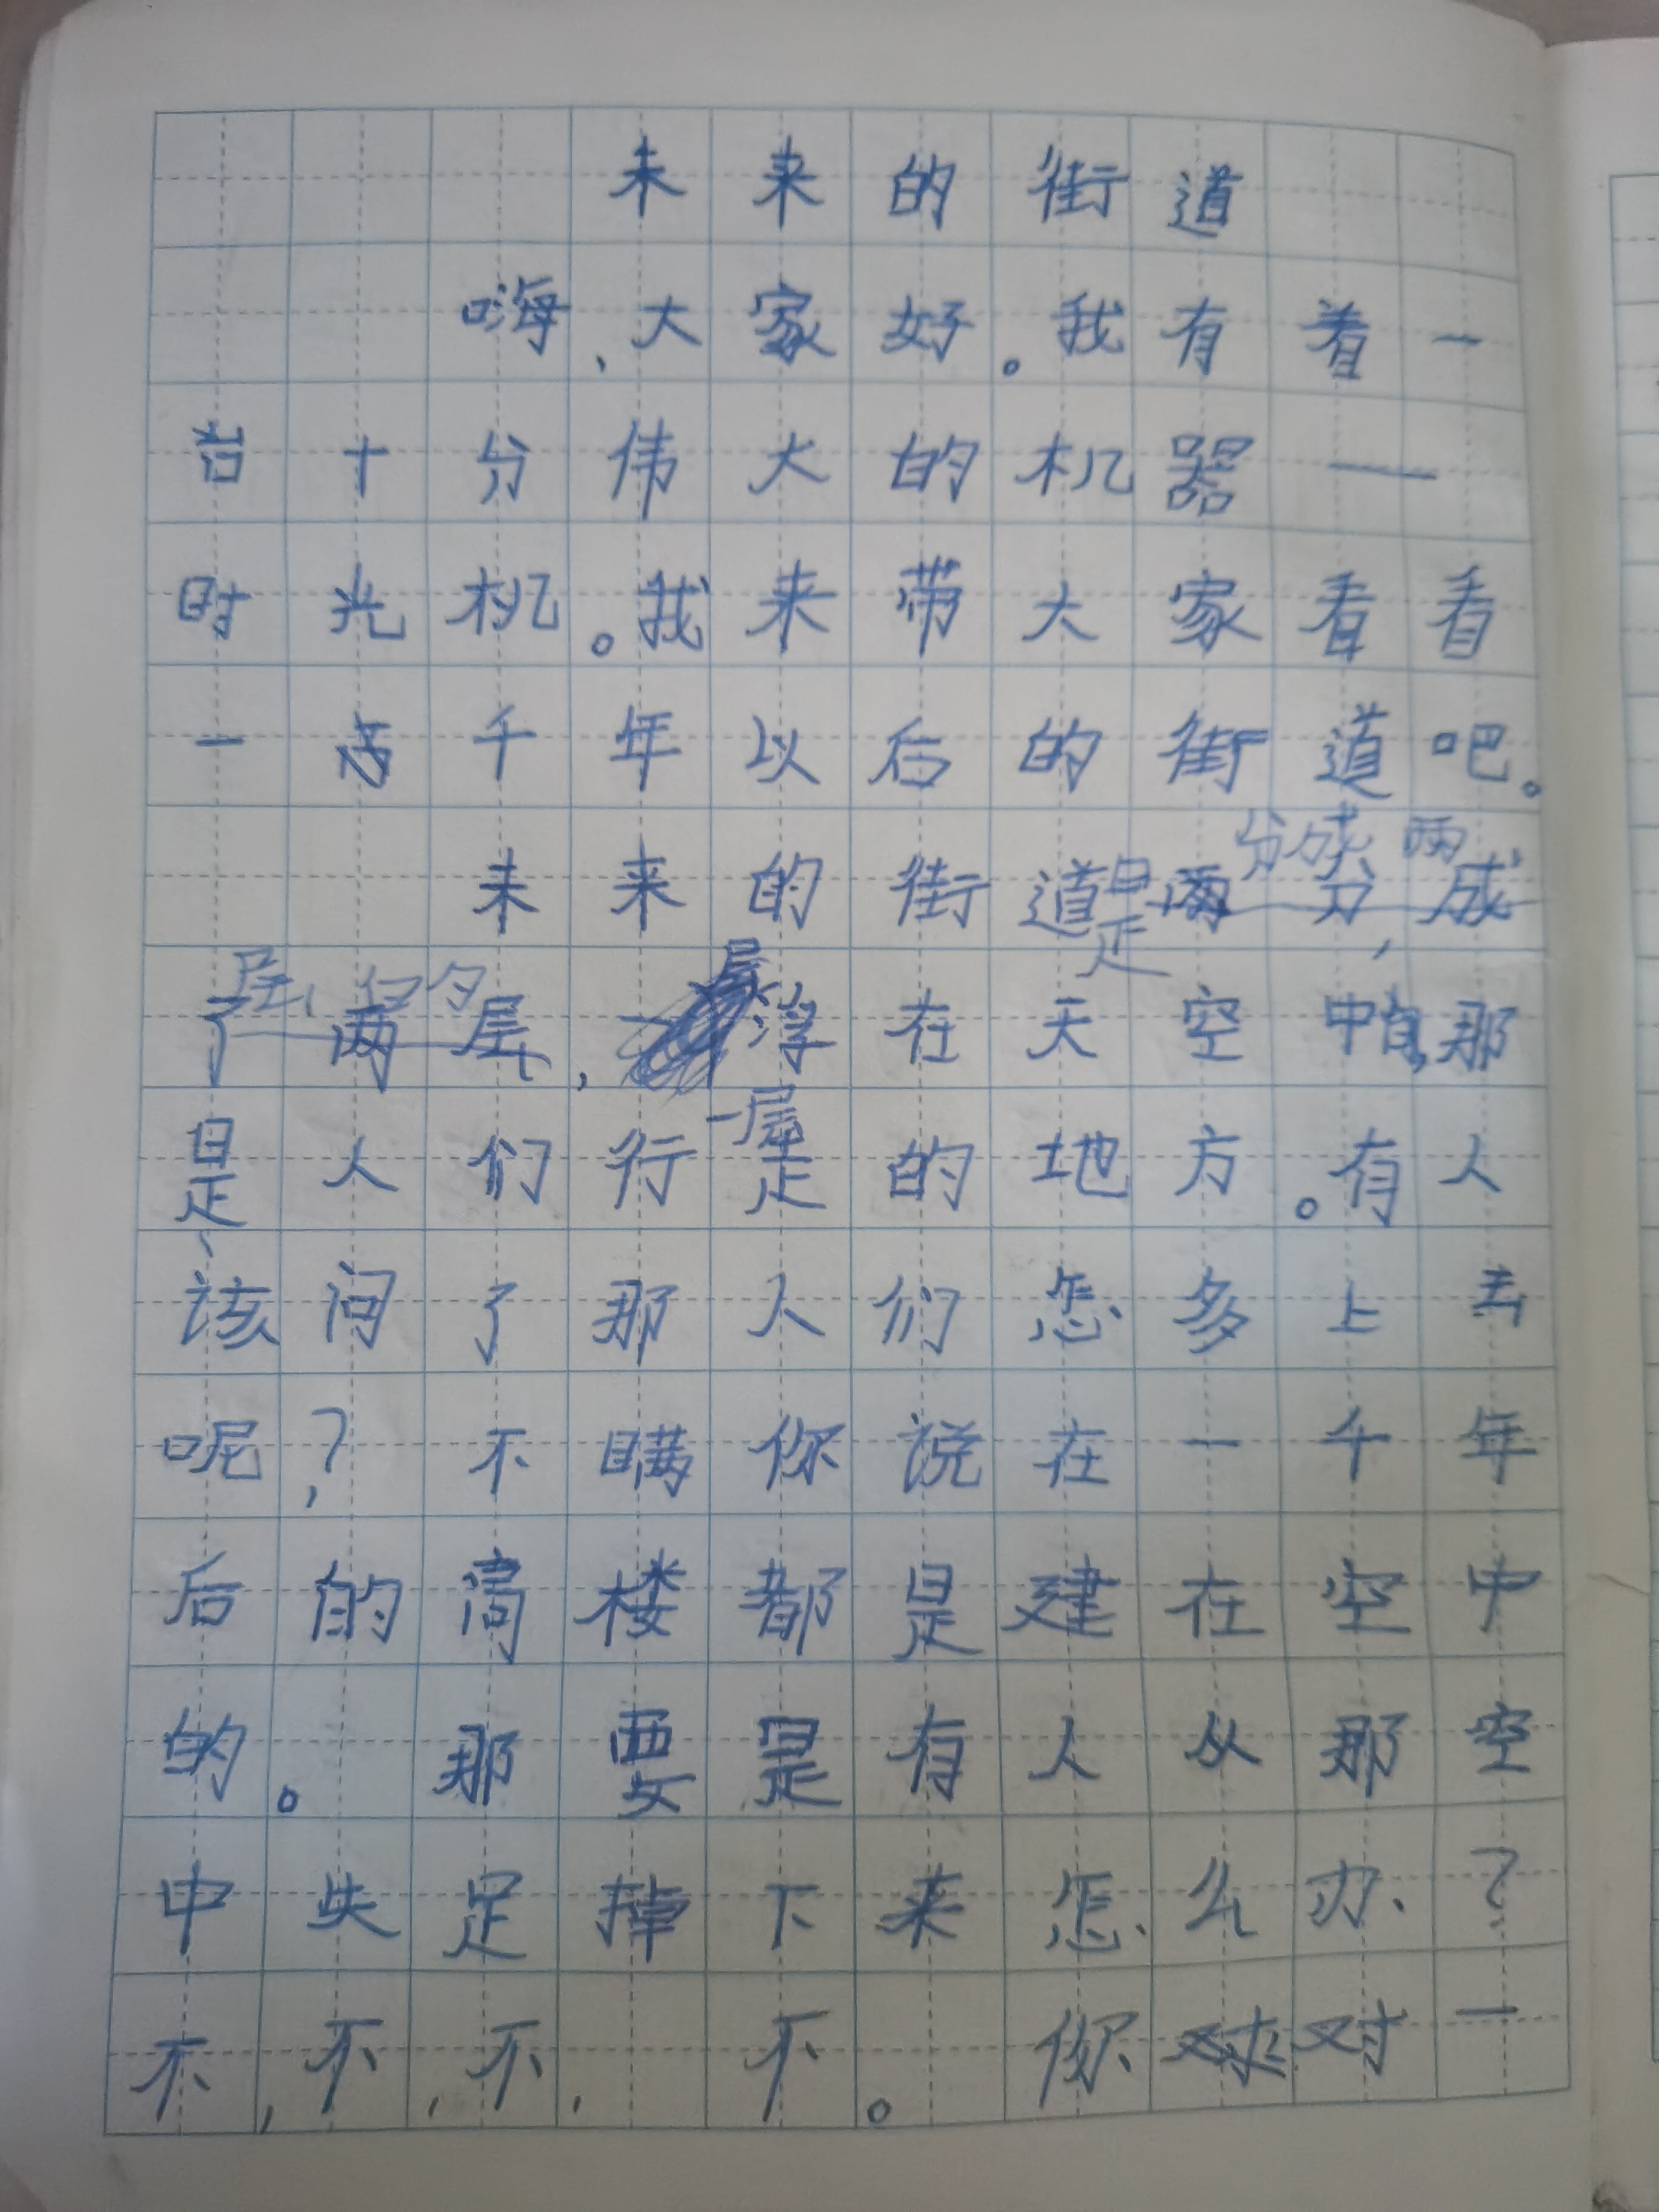 未来的街道
嗨，大家好。我有着一
台十分伟大的机器——
时光机。我来带大家看看
一千年以后的街道吧。
未来的街道是分成两
层，一层浮在天空中的，那
是人们行走的地方。有人
该问了那人们怎多上去
呢？不瞒你说在一千年
后的高楼都是建在空中
的。那要是有人从那空
中失足掉下来怎么办？
不，不，不，不。你对一